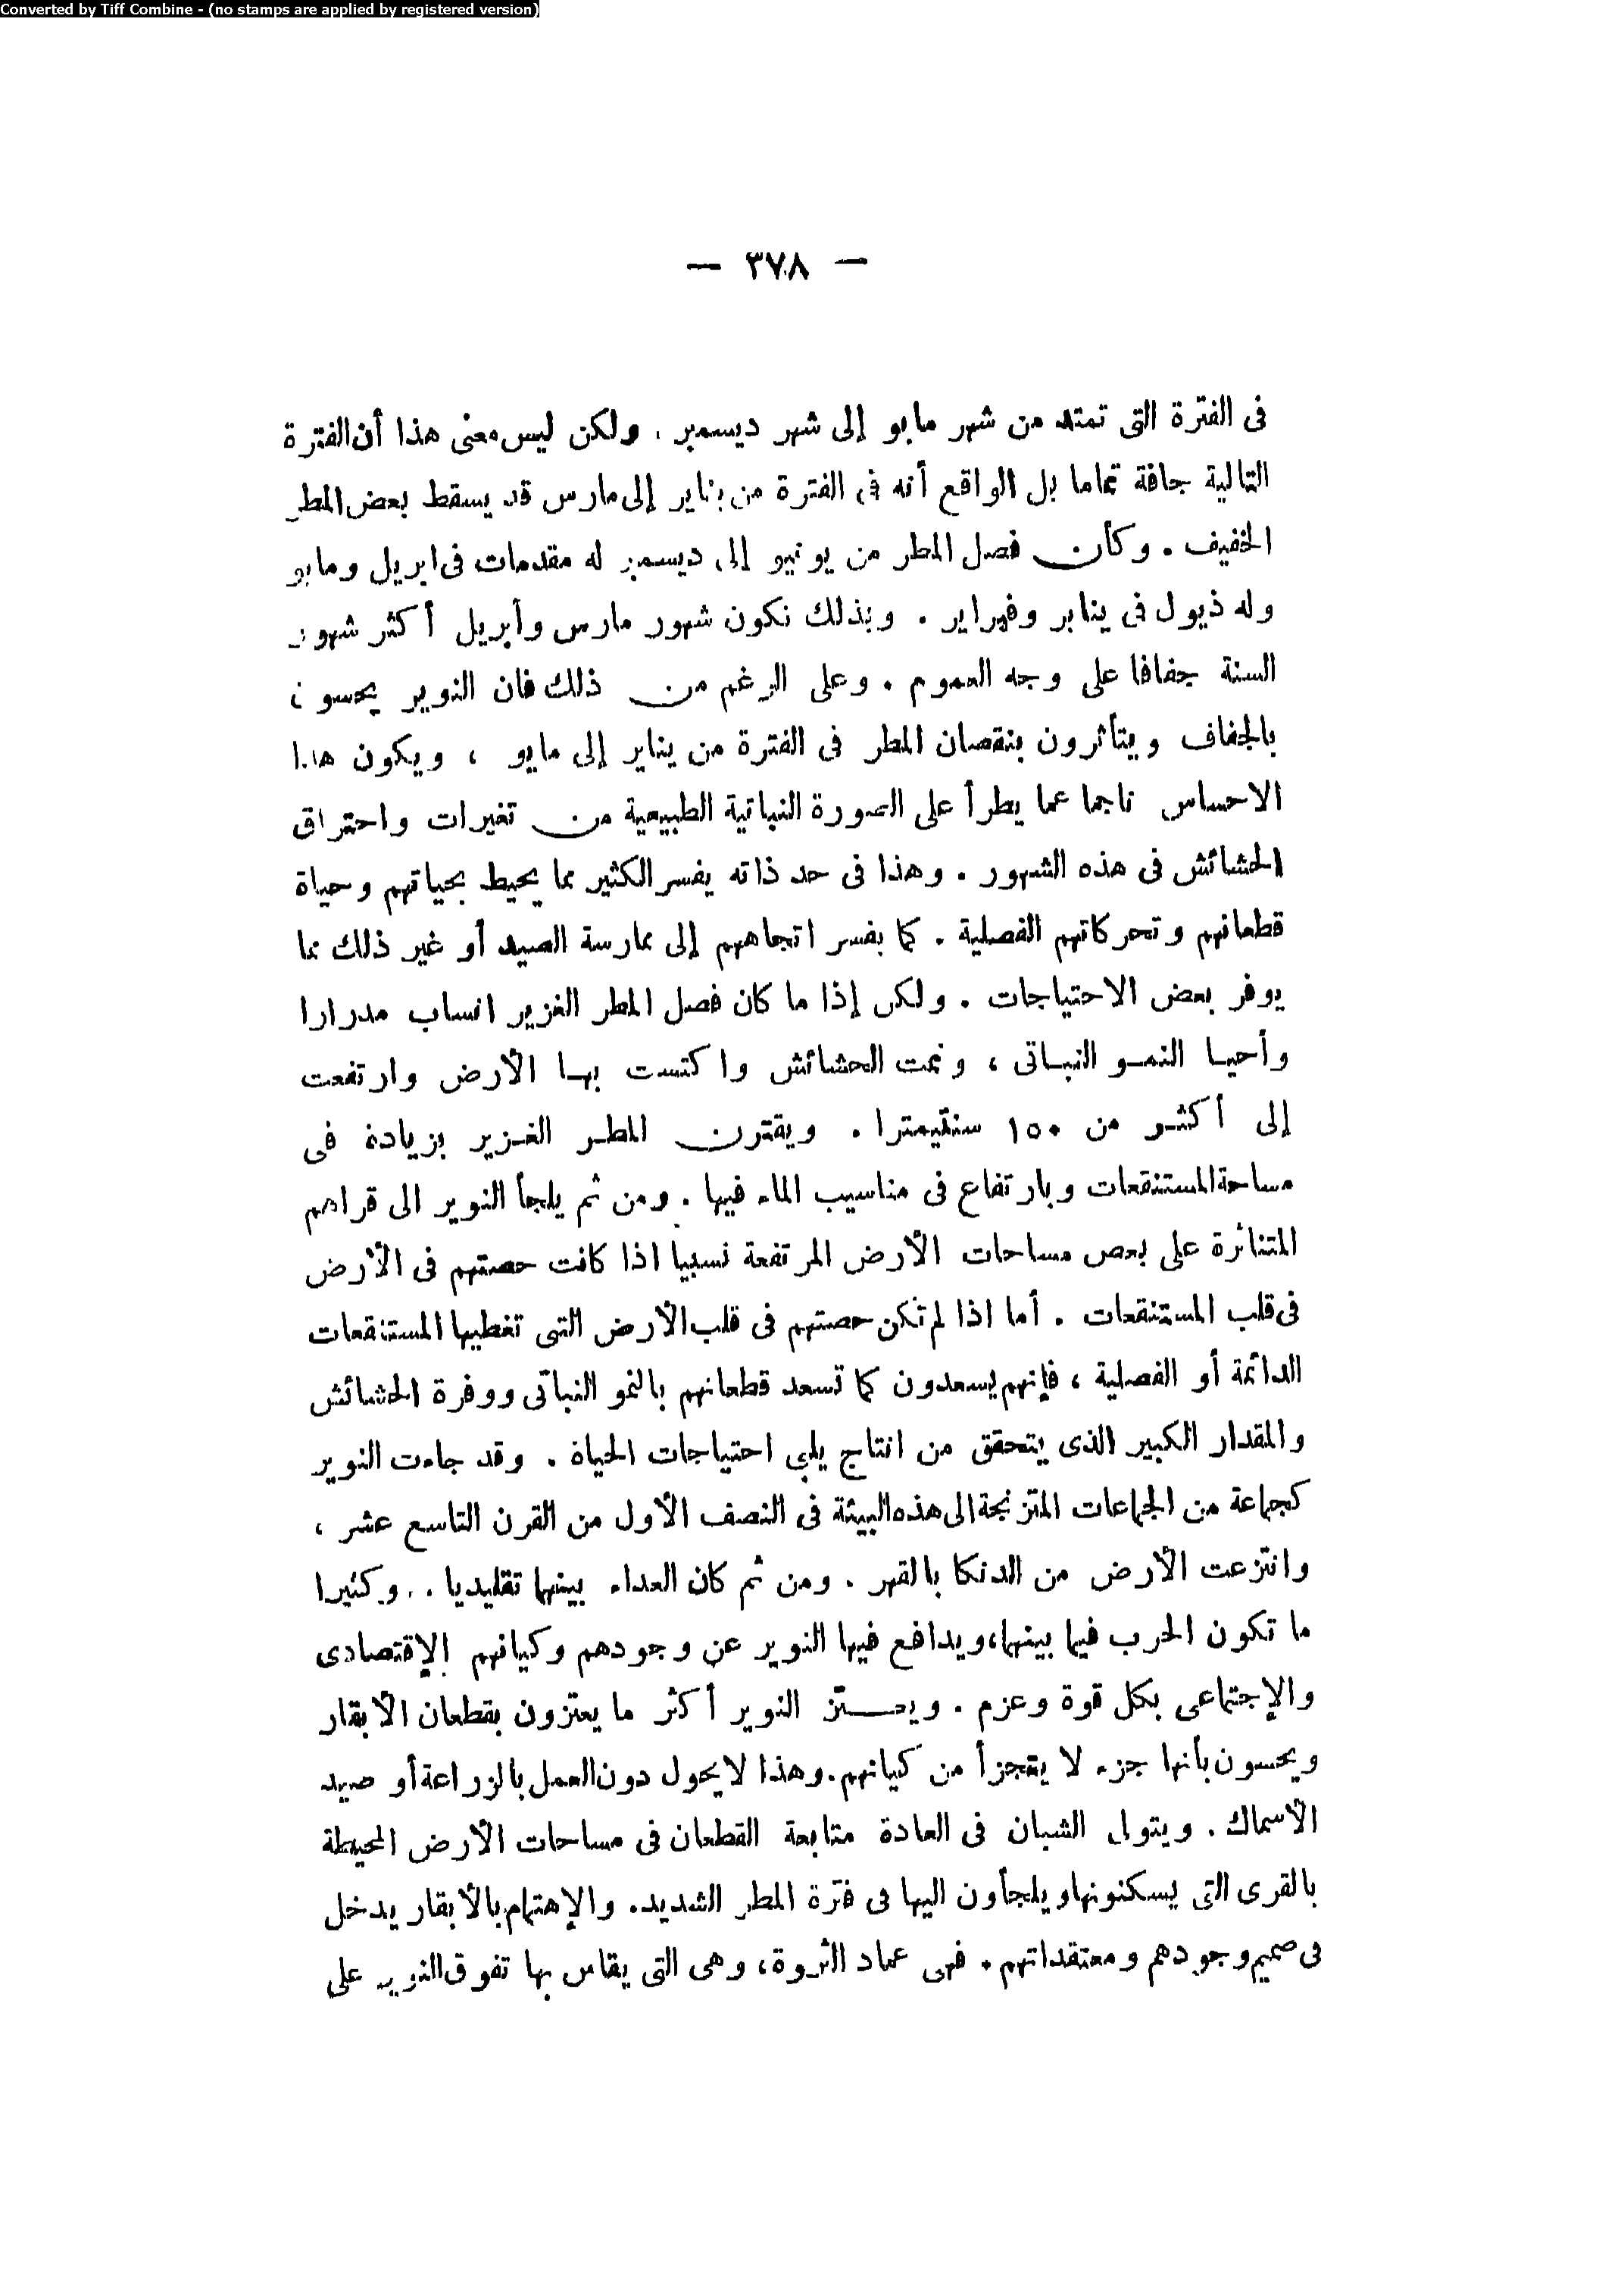 Converted by Tiff Combine - (no stamps are applied by registered version)
— ٣٧٨ —
فى الفترة التى تمتد من شهر مايو إلى شهر ديسمبر . ولكن ليس معنى هذا أن الفترة
التالية جافة تماما بل الواقع أنه فى الفترة من يناير إلى مارس قد يسقط بعض المطر
الخفيف . وكأن فصل المطر من يونيو إلى ديسمبر له مقدمات فى ابريل ومايو
وله ذيول فى يناير وفبراير . وبذلك تكون شهور مارس وأبريل أكثر شهور
السنة جفافا على وجه العموم . وعلى الرغم من ذلك فان النوير يحسون
بالجفاف ويتأثرون بنقصان المطر فى الفترة من يناير إلى مايو ، ويكون هذا
الاحساس ناجما عما يطرأ على الصورة النباتية الطبيعية من تغيرات واحتراق
الحشائش فى هذه الشهور . وهذا فى حد ذاته يفسر الكثير مما يحيط بحياتهم وحياة
قطعانهم وتحركاتهم الفصلية . كما يفسر اتجاههم إلى ممارسة الصيد أو غير ذلك مما
يوفر بعض الاحتياجات . ولكن إذا ما كان فصل المطر الغزير انساب مدرارا
وأحيا النمو النباتى ، ونمت الحشائش واكتست بها الأرض وارتفعت
إلى أكثر من ١٥٠ سنتيمترا . ويقترن المطر الغزير بزيادة فى
مساحة المستنقعات وبارتفاع فى مناسيب الماء فيها . ومن ثم يلجأ النوير الى قراهم
المتناثرة على بعض مساحات الأرض المرتفعة نسبيا اذا كانت حصتهم فى الأرض
فى قلب المستنقعات . أما اذا لم تكن حصتهم فى قلب الأرض التى تغطيها المستنقعات
الدائمة أو الفصلية ، فإنهم يسعدون كما تسعد قطعانهم بالنمو النباتى ووفرة الحشائش
والمقدار الكبير الذى يتحقق من انتاج يلبى احتياجات الحياة . وقد جاءت النوير
كجماعة من الجماعات المتزنجة الى هذه البيئة فى النصف الأول من القرن التاسع عشر ،
وانتزعت الأرض من الدنكا بالقهر . ومن ثم كان العداء بينهما تقليديا . . وكثيرا
ما تكون الحرب فيما بينهما، ويدافع فيها النوير عن وجودهم وكيانهم الإقتصادى
والإجتماعى بكل قوة وعزم . ويعتز النوير أكثر ما يعتزون بقطعان الأبقار
ويحسون بأنها جزء لا يتجزأ من كيانهم. وهذا لا يحول دون العمل بالزراعة أو صيد
الأسماك . ويتولى الشبان فى العادة متابعة القطعان فى مساحات الأرض المحيطة
بالقرى التى يسكنونها ويلجأون اليها فى فترة المطر الشديد. والإهتمام بالأبقار يدخل
فى صميم وجودهم ومعتقداتهم . فهى عماد الثروة، وهى التى يقاس بها تفوق النوير على